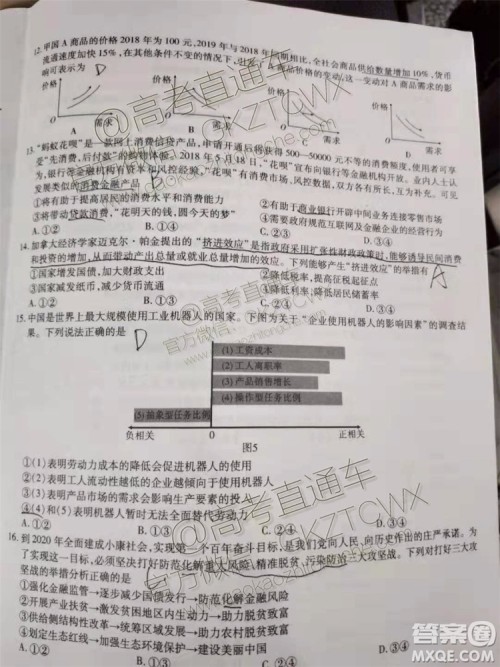 12. 甲国A商品的价格2018年为100元,2019年与2018年同期相比,全社会商品供给数量增加10%,货币
流通速度加快15%,在其他条件不变的情况下,
商品价格的变动对A商品需求的影
响可表示为 D
价格 价格 价格 价格
需求 需求 需求 需求
A B C D
13. “蚂蚁花呗”是一款网上消费信贷产品,申请开通后将获得500—50000元不等的消费额度,使用者可享
受“先消费,后付款”的购物体验。2018年5月18日,“花呗”宣布向银行等金融机构开放。业内人士认
为,银行等金融机构有资本和风控经验,“花呗”有市场资源、风控数据,双方各有所长、互为补充。可见
发展类似的消费金融产品 B
①将有助于提高居民的消费水平和消费能力
②有助于商业银行开辟中间业务连接零售市场
③将带动贷款消费,“花明天的钱,圆今天的梦”
④需要政府规范互联网及金融企业的经营行为
A.①② B.①③ C.②④ D.③④
14. 加拿大经济学家迈克尔·帕金提出的“挤进效应”是指政府采用扩张性财政政策时,能够诱导民间消费
和投资的增加,从而带动产出总量或就业总量增加的效应。下列能够产生“挤进效应”的举措有 A
①国家增发国债,加大财政支出
②降低税率,提高征税起征点
③国家减发纸币,减少货币流通
④降低利率,降低居民储蓄率
A.①② B.①③ C.②④ D.③④
15. 中国是世界上最大规模使用工业机器人的国家。下图为关于“企业使用机器人的影响因素”的调查结
果。下列说法正确的是 D
(1)工资成本
(2)工人离职率
(3)产品销售增长
(4)操作型任务比例
(5)抽象型任务比例
负相关 0 正相关
图5
①(1)表明劳动力成本的降低会促进机器人的使用
②(2)表明工人流动性越低的企业越倾向于使用机器人
③(3)表明产品市场的需求会影响生产要素的投入
④(4)和(5)表明机器人暂时无法全面替代劳动力
A.①② B.①③ C.②④ D.③④
16. 到2020年全面建成小康社会,实现第一个百年奋斗目标,是我们党向人民、向历史作出的庄严承诺。为
了实现这一目标,必须坚决打好防范化解重大风险、精准脱贫、污染防治三大攻坚战。下列对打好三大攻
坚战的举措分析正确的是
①强化金融监管→逐步减少国债发行→防范化解金融风险
②开展产业扶贫→激发贫困地区内生动力→助力脱贫致富
③保障房改造工程→统筹区域发展→助力脱贫致富
④划定生态红线→加强生态环境保护→建设美丽中国
A.①② B.①③ C.②④ D.③④
@高考直通车
GKZTCWX
@高考直通车
官方微信:
GKZTCWX
@高考直通车
GKZTCWX
答案圈
MXQE.COM